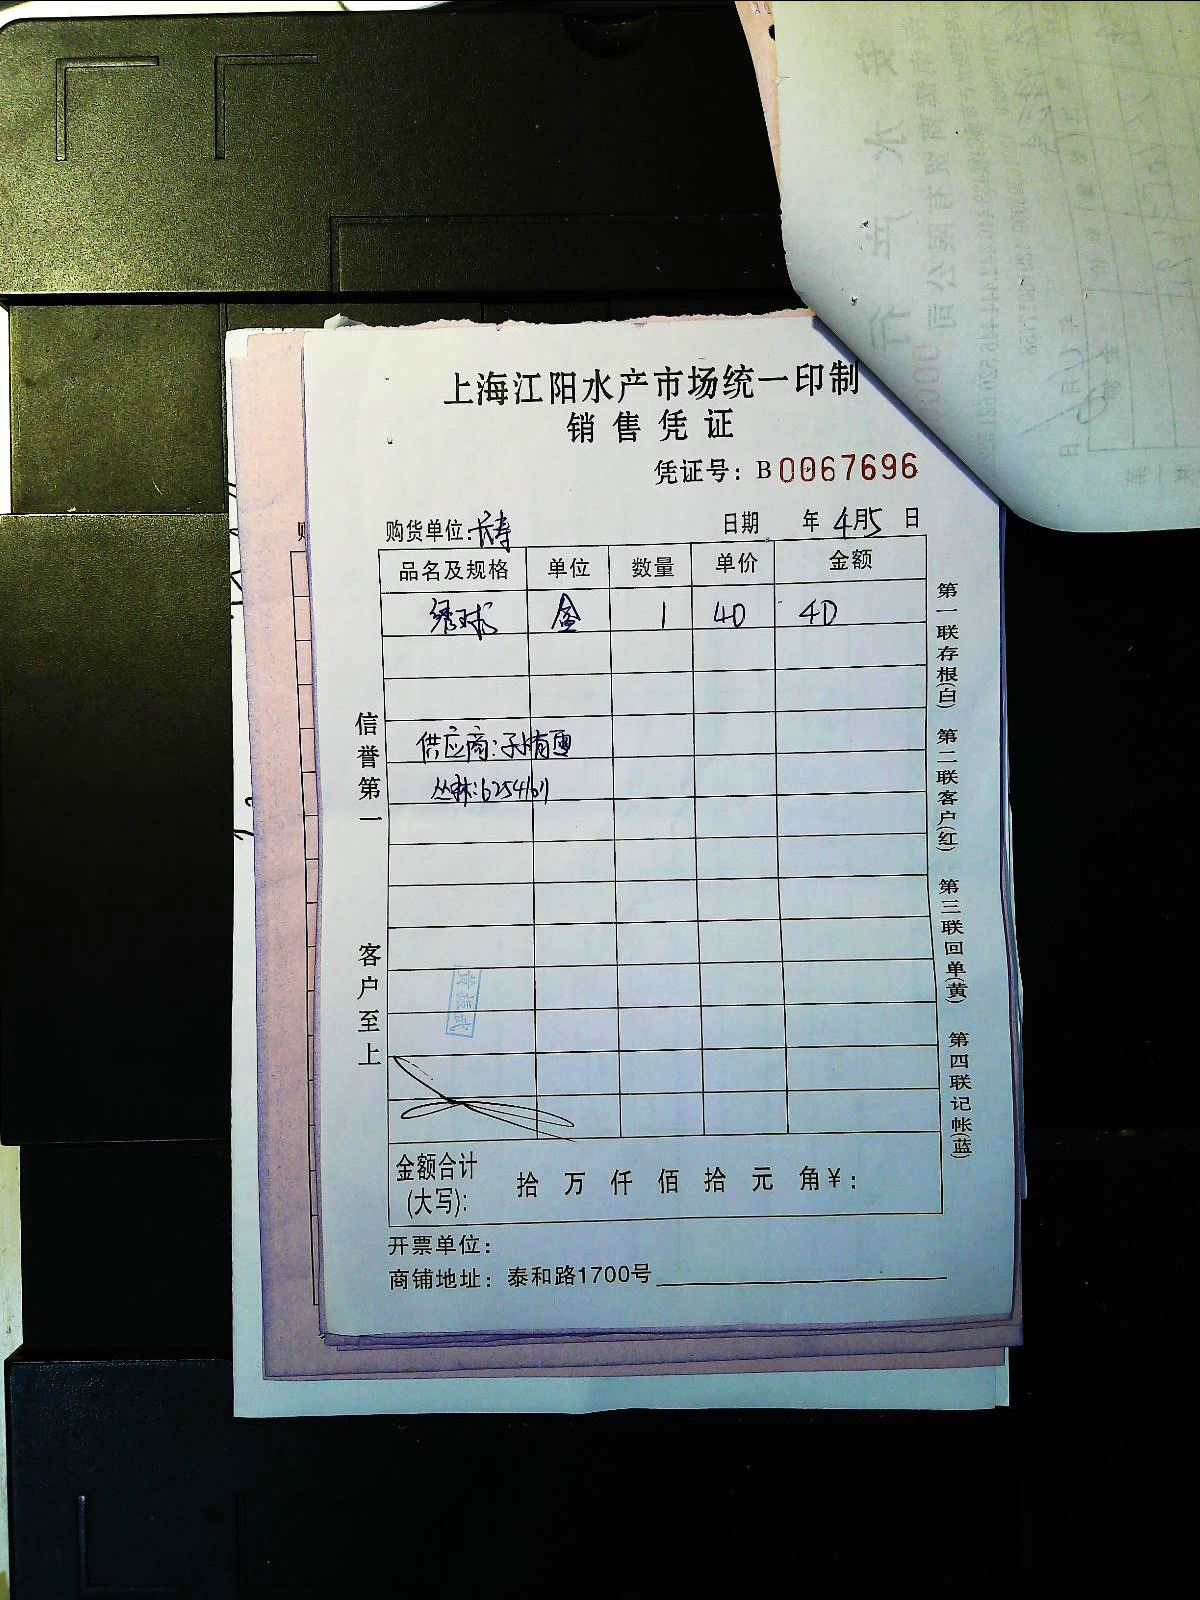 上海江阳水产市场统一印制
销售凭证
凭证号：B 0067696
购货单位：长寿 日期 年 4月5 日
品名及规格 单位 数量 单价 金额
绣球 盒 1 40 40
供应商：
丛林：6254161
信誉第一 客户至上
第一联存根(白) 第二联客户(红) 第三联回单(黄) 第四联记帐(蓝)
金额合计
(大写)： 拾 万 仟 佰 拾 元 角 ¥：
开票单位：
商铺地址：泰和路1700号